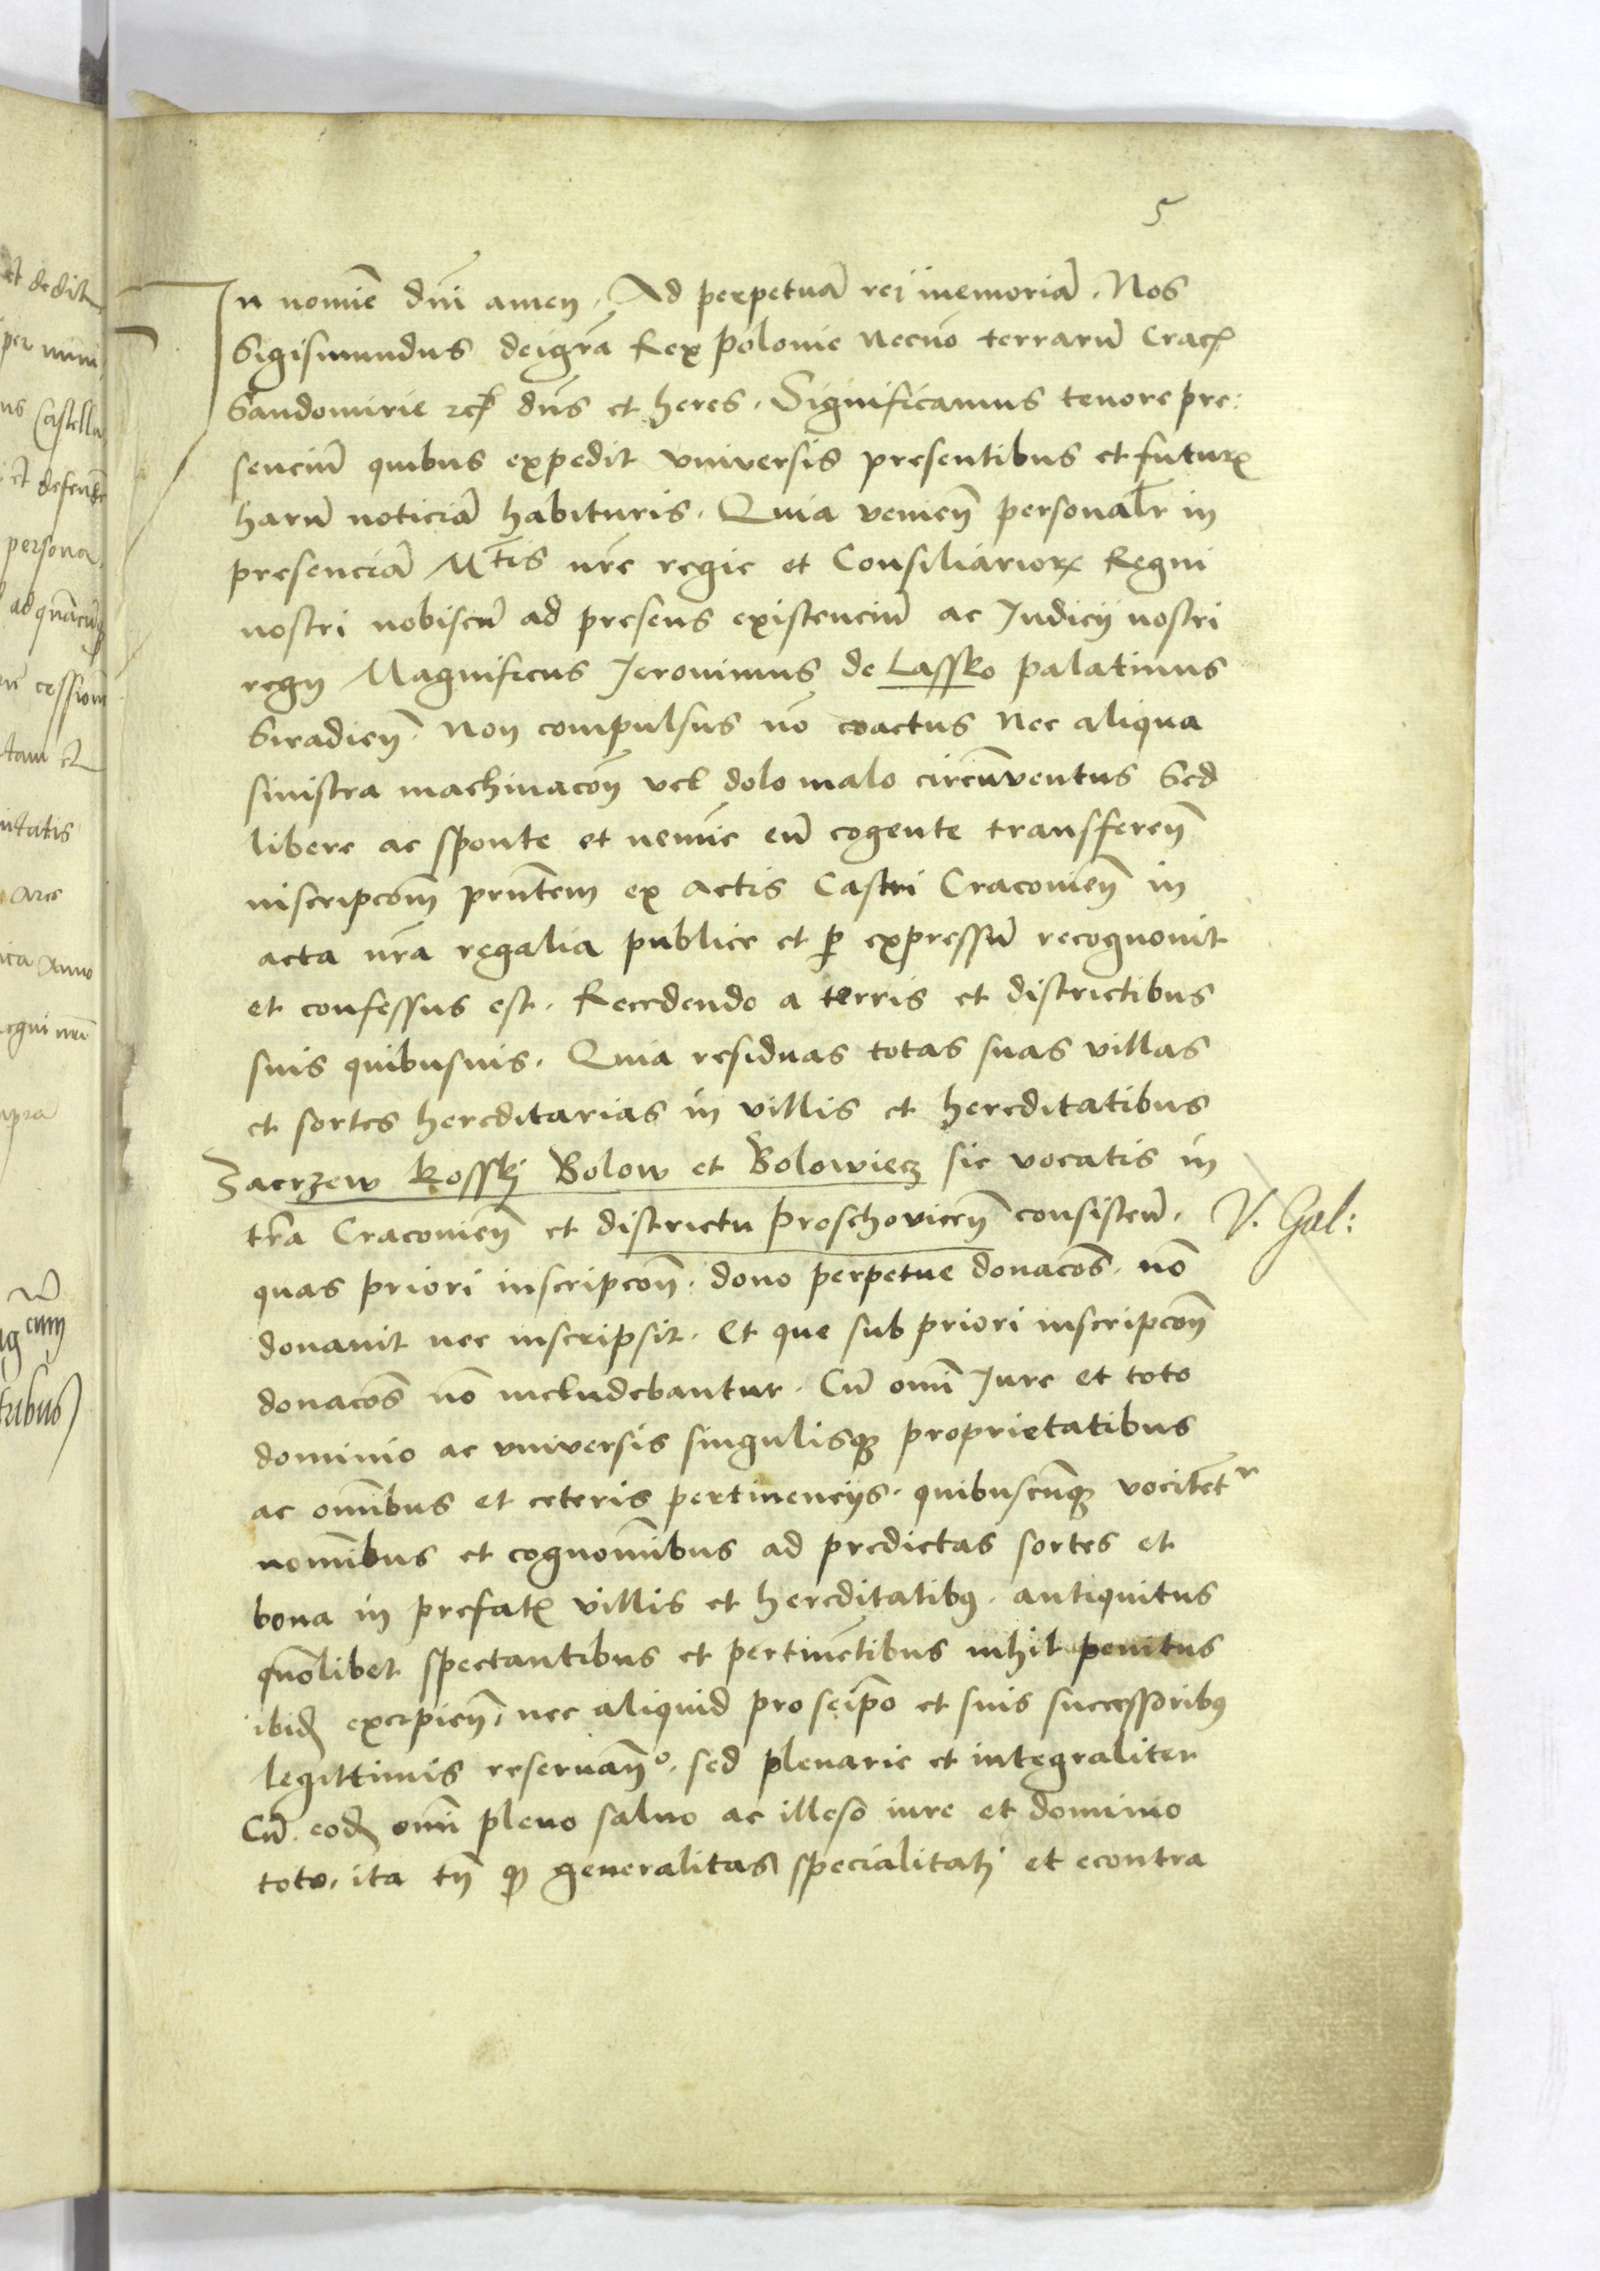 5
In nomie dni amen. Ad perpetuā rej memoriā. Nos
Sigismundus deigrā Rex Polonie Necnō terrarū Crac̄
Sandomirie zc̄ dns et heres. Significamus tenore pre:
senciū quibus expedit vniversis presentibus et futurꝝ
harū noticiā habituris. Quia venien̄ personalr̄ in
presenciā Mtis nrē regie et Consiliariorꝝ Regni
nostri nobiscū ad presens existenciū ac Judicij nostri
regij Magnificus Jeronimus de Lassko palatinus
Siradien̄. Non compulsus nō coactus Nec aliqua
sinistra machinacōn̄ vel dolo malo circūventus Sed
libere ac sponte et nemīe eū cogente transferen̄
inscripcōm̄ prn̄tem ex actis Castri Cracovien̄ in
acta nrā regalia publice et ꝑ expressū recognovit
et confessus est. Recedendo a terris et districtibus
suis quibusuis. Quia residuas totas suas villas
et sortes hereditarias in villis et hereditatibus
Zacrzew Kosskj Bolow et Bolowiecz sic vocatis in
trā Cracovien̄ et districtu Proschovicen̄ consisten̄.
V. Gal:
quas priori inscripcōn̄. dono perpetue donacōs. nō
donavit nec inscripsit. Et que sub priori inscripcōn̄
donacōs nō includebantur. Cū omī Jure et toto
dominio ac vniversis singulisqꝫ proprietatibus
ac omībus et ceteris pertinencijs. quibuscūqꝫ vocitet̄ʳ
nomībus et cognomībus ad predictas sortes et
bona in prefatꝭ villis et hereditatibꝰ. antiquitus
qūolibet spectantibus et pertinēctibus nihil penitus
ibid̄ excipien̄, nec aliquid pro seip̄o et suis successoribꝰ
legittimis reservan̄º. sed plenarie et integraliter
Cū eod̄ omī pleno salvo ac illeso iure et dominio
toto, ita tn̄ qꝫ generalitas specialitatj et econtra
et dedit
per
ns Castella
et defens
persona
ad quācūqꝫ
cession
tam et
Anno
cum
tribus